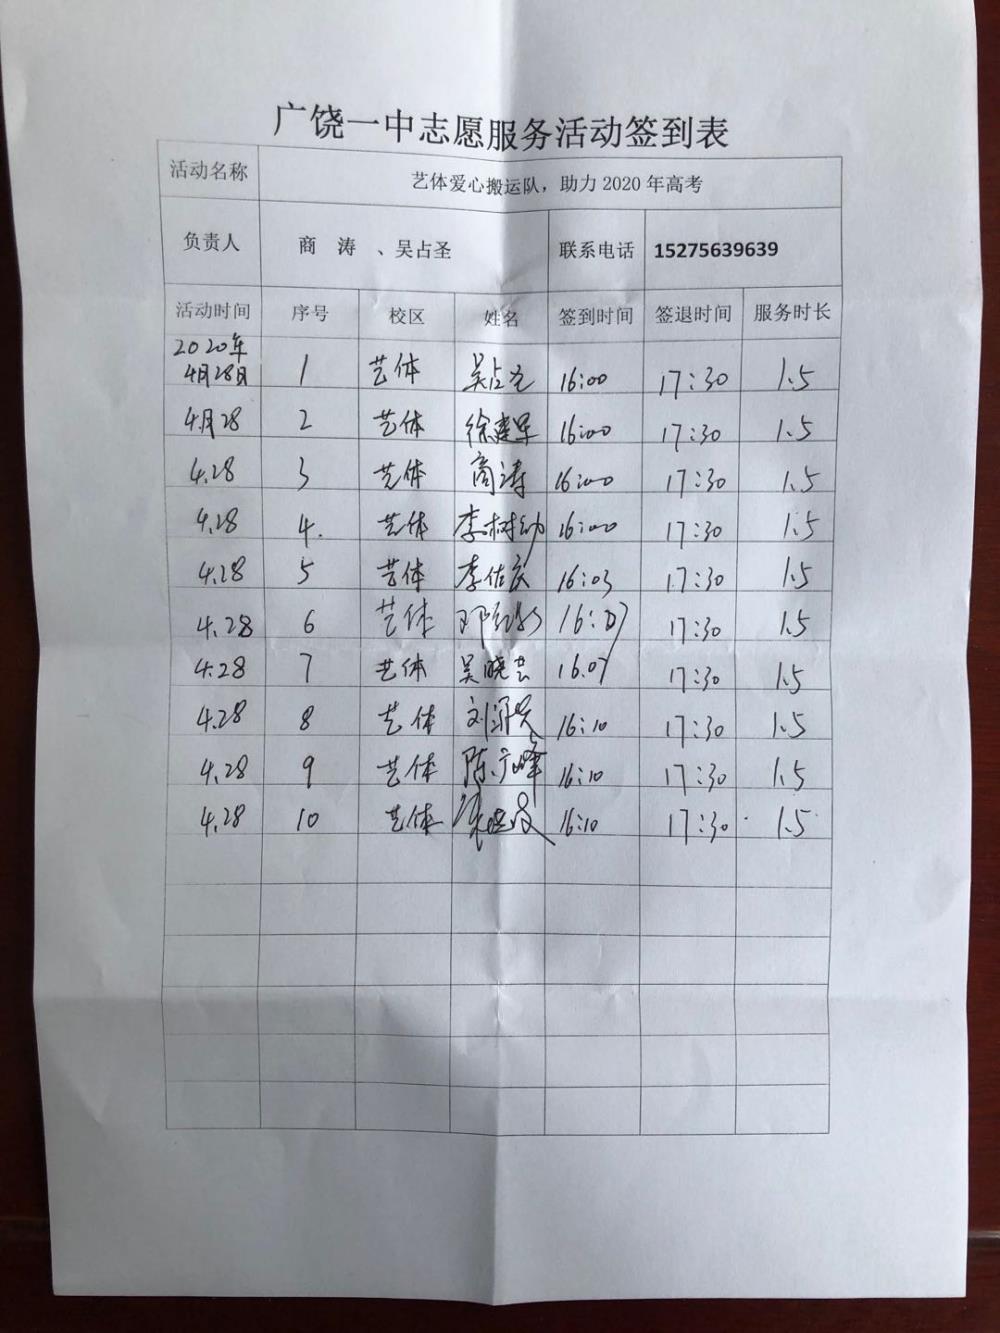 广饶一中志愿服务活动签到表
活动名称 艺体爱心搬运队，助力 2020 年高考
负责人 商 涛 、吴占圣 联系电话 15275639639
活动时间 序号 校区 姓名 签到时间 签退时间 服务时长
2020年
4月28日 1 艺体 吴占圣 16:00 17:30 1.5
4月28 2 艺体 徐建军 16:00 17:30 1.5
4.28 3 艺体 商涛 16:00 17:30 1.5
4.28 4. 艺体 李树 16:00 17:30 1.5
4.28 5 艺体 李佐庆 16:03 17:30 1.5
4.28 6 艺体 邓 16:07 17:30 1.5
4.28 7 艺体 吴晓芸 16.07 17:30 1.5
4.28 8 艺体 刘 16:10 17:30 1.5
4.28 9 艺体 陈广峰 16:10 17:30 1.5
4.28 10 艺体 16:10 17:30 1.5